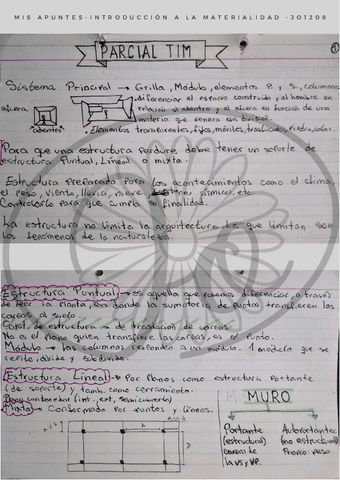 MIS APUNTES-INTRODUCCIÓN A LA MATERIALIDAD -JO1208
PARCIAL TIM
Sistema Principal → Grilla, Módulo, elementos P. y S., columnas
diferenciar el espacio construido y al hombre en
relación al adentro y al afuera en función de una
materia que genera esa división.
afuera
adentro
• Elementos transparentes, fijos, móviles, traslucidos, piedra, color.
Para que una estructura perdure debe tener un soporte de
estructura Puntual, Lineal o mixta.
Estructura preparada para los acontecimientos como el clima,
el peso, viento, lluvia, nieve, sismicas, etc.
Controlarlo para que cumpla su finalidad.
La estructura no limita la arquitectura. La que limitan son
los fenómenos de la naturaleza.
Estructura Puntual → es aquella que podemos diferenciar a través
de leer la planta, es donde la sumatoria de puntos transfieren las
cargas al suelo.
de traslación de cargas.
No es el plano quien transfiere las cargas, es el punto.
Módulo → las columnas responden a un módulo. 1 módulo que se
repite, divide y subdivide.
Estructura Lineal → Por planos como estructura portante
(de soporte) y tamb. como cerramiento.
Plano contenedor (int., ext., semicubierto)
Mixta → Conformada por puntos y líneas.
MURO
Portante
(estructural)
cargas de
la VS y VP.
Autoportante
(no estructural)
Propio peso